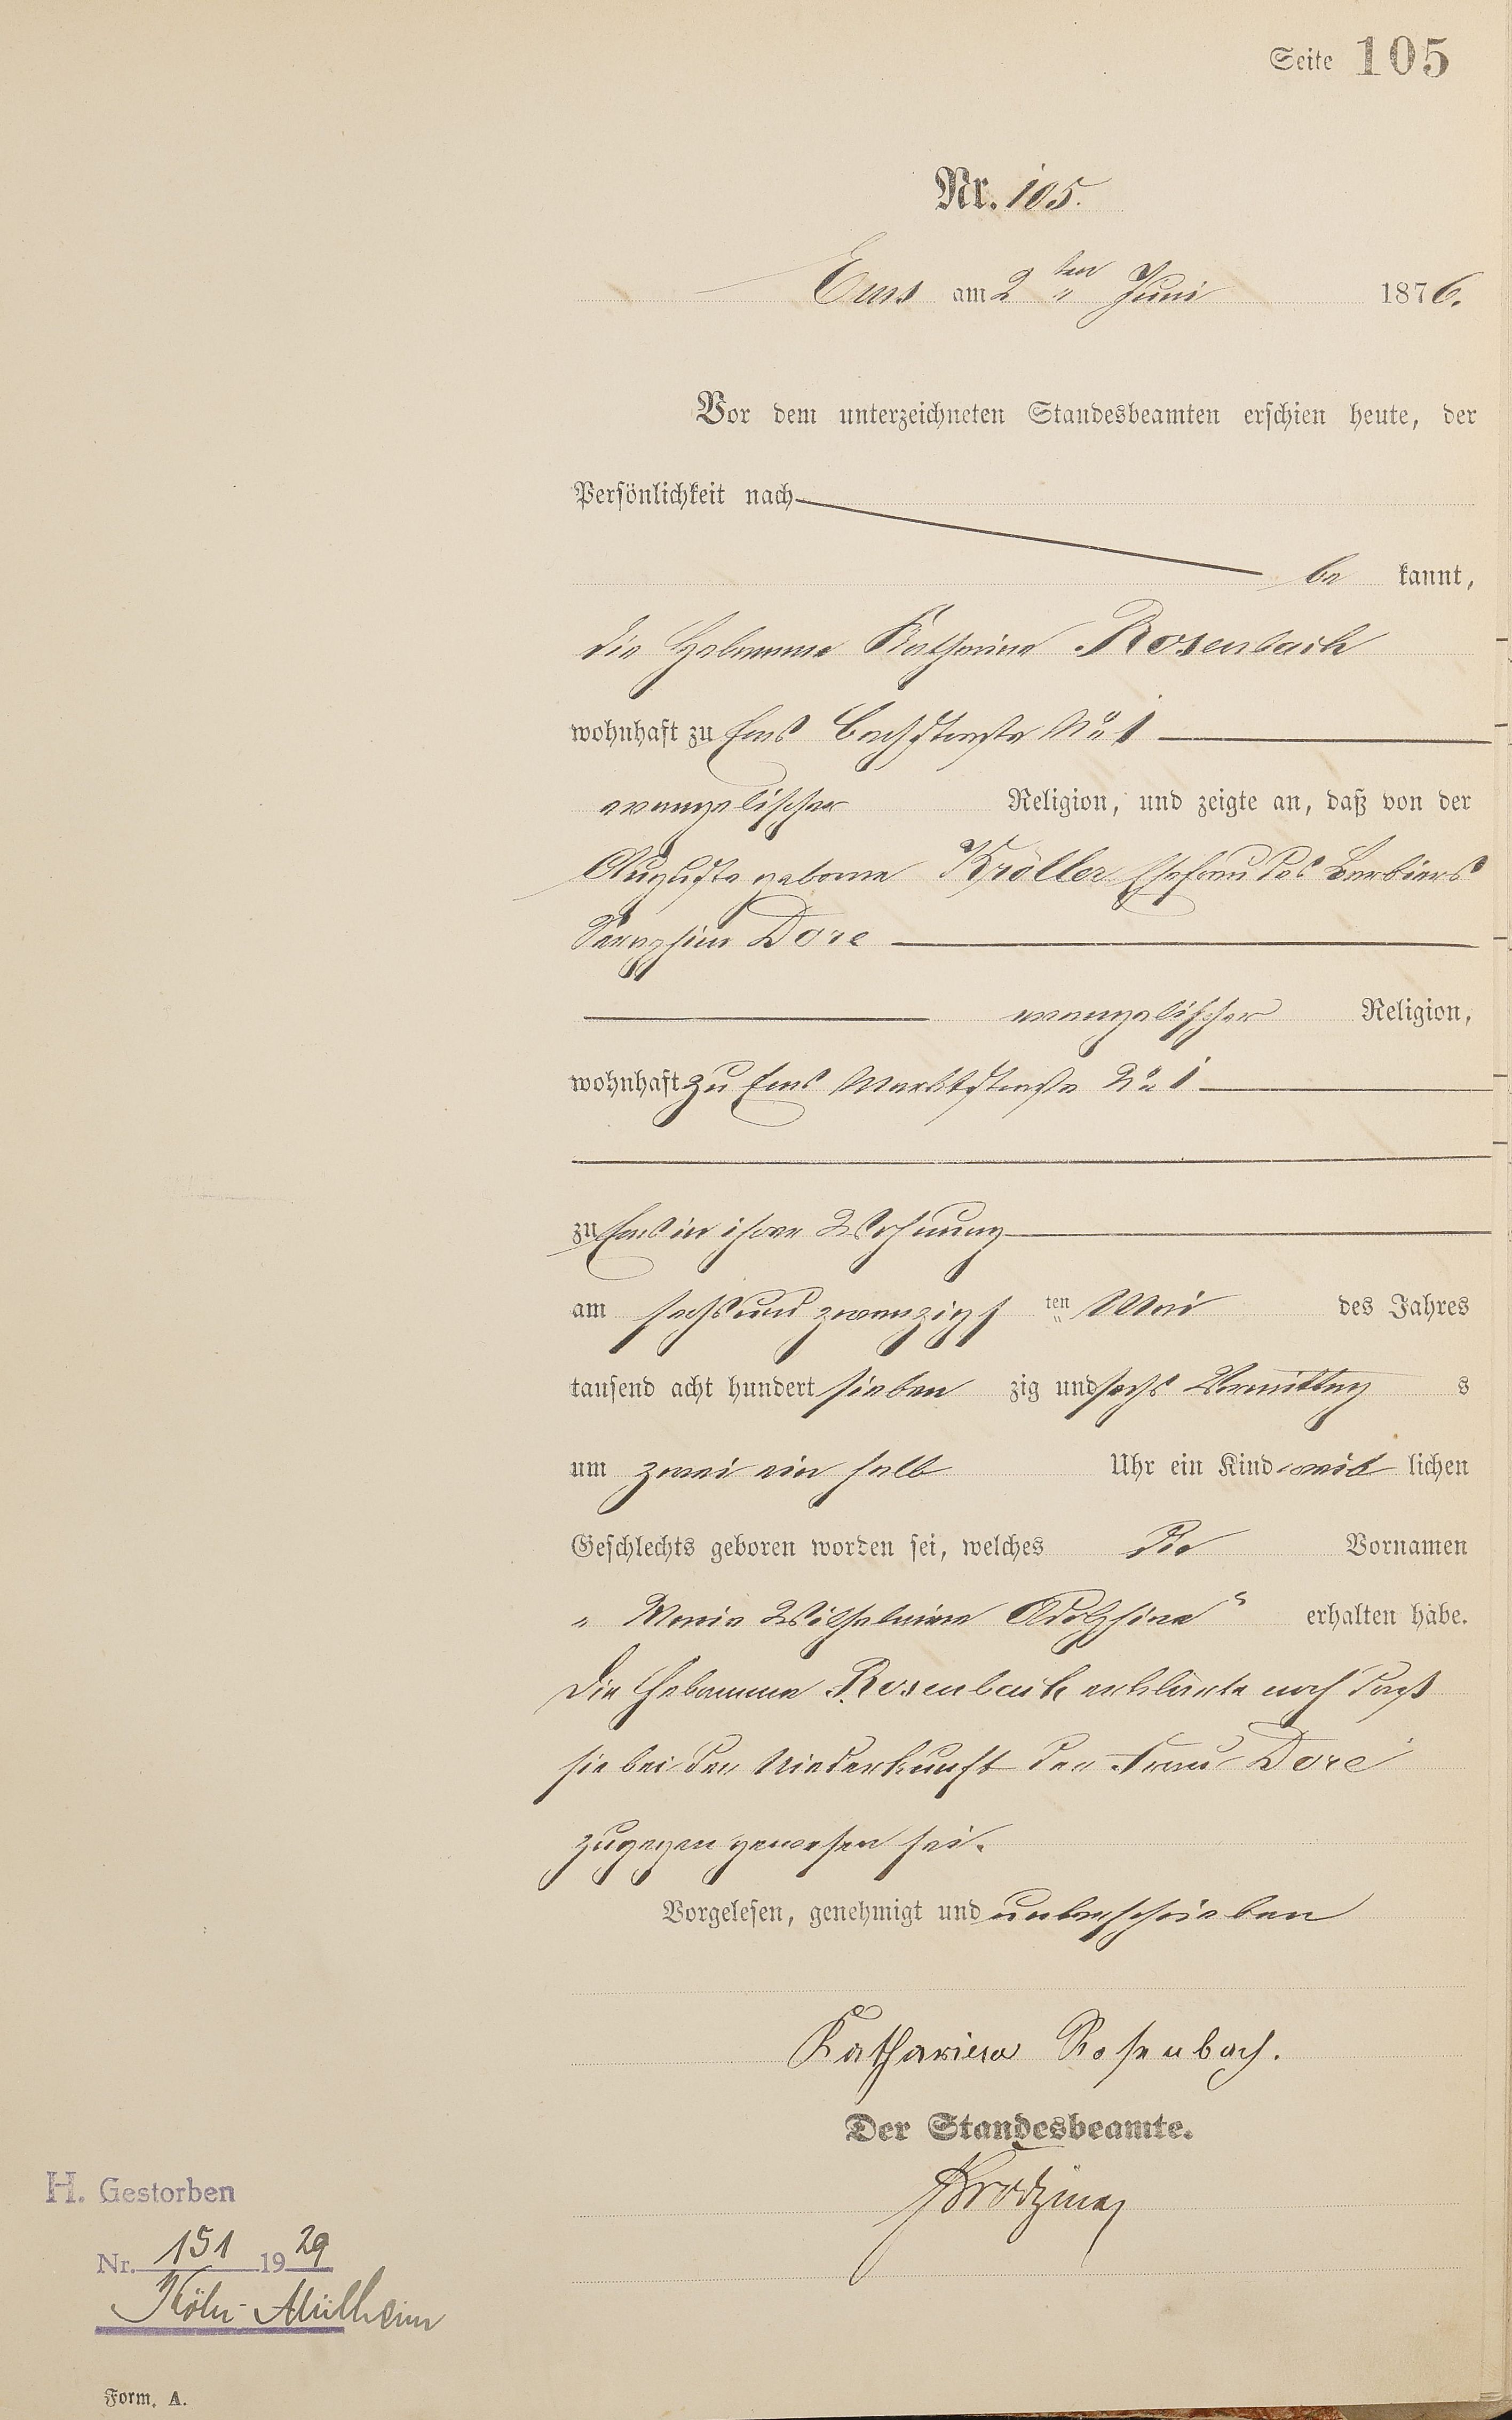 Seite 105
Nr. 105.
Ems am 2ten Juni 1876.
Vor dem unterzeichneten Standesbeamten erschien heute, der
Persönlichkeit nach
be kannt,
die Hebamme Katharina Rosenbach
wohnhaft zu Ems Bachstraße No 1
evangelischer Religion, und zeigte an, daß von der
Auguste geborne Kröller Ehefrau des Barbiers
Seraphim Dore
evangelischer Religion,
wohnhaft zu Ems Marktstraße No 1
zu Ems in ihrer Wohnung
am sechsundzwanzigsten Mai des Jahres
tausend acht hundert sieben zig und sechs Vormittag s
um zwei ein halb Uhr ein Kind weib lichen
Geschlechts geboren worden sei, welches die Vornamen
„Maria Wilhelmine Adolphine“ erhalten habe.
Die Hebamme Rosenbach erklärte noch daß
sie bei der Niederkunft der Frau Dore
zugegen gewesen sei.
Vorgelesen, genehmigt und unterschrieben
Katharina Rosenbach.
Der Standesbeamte.
H. Gestorben
Nr. 151 1929
Köln-Mülheim
Form. A.